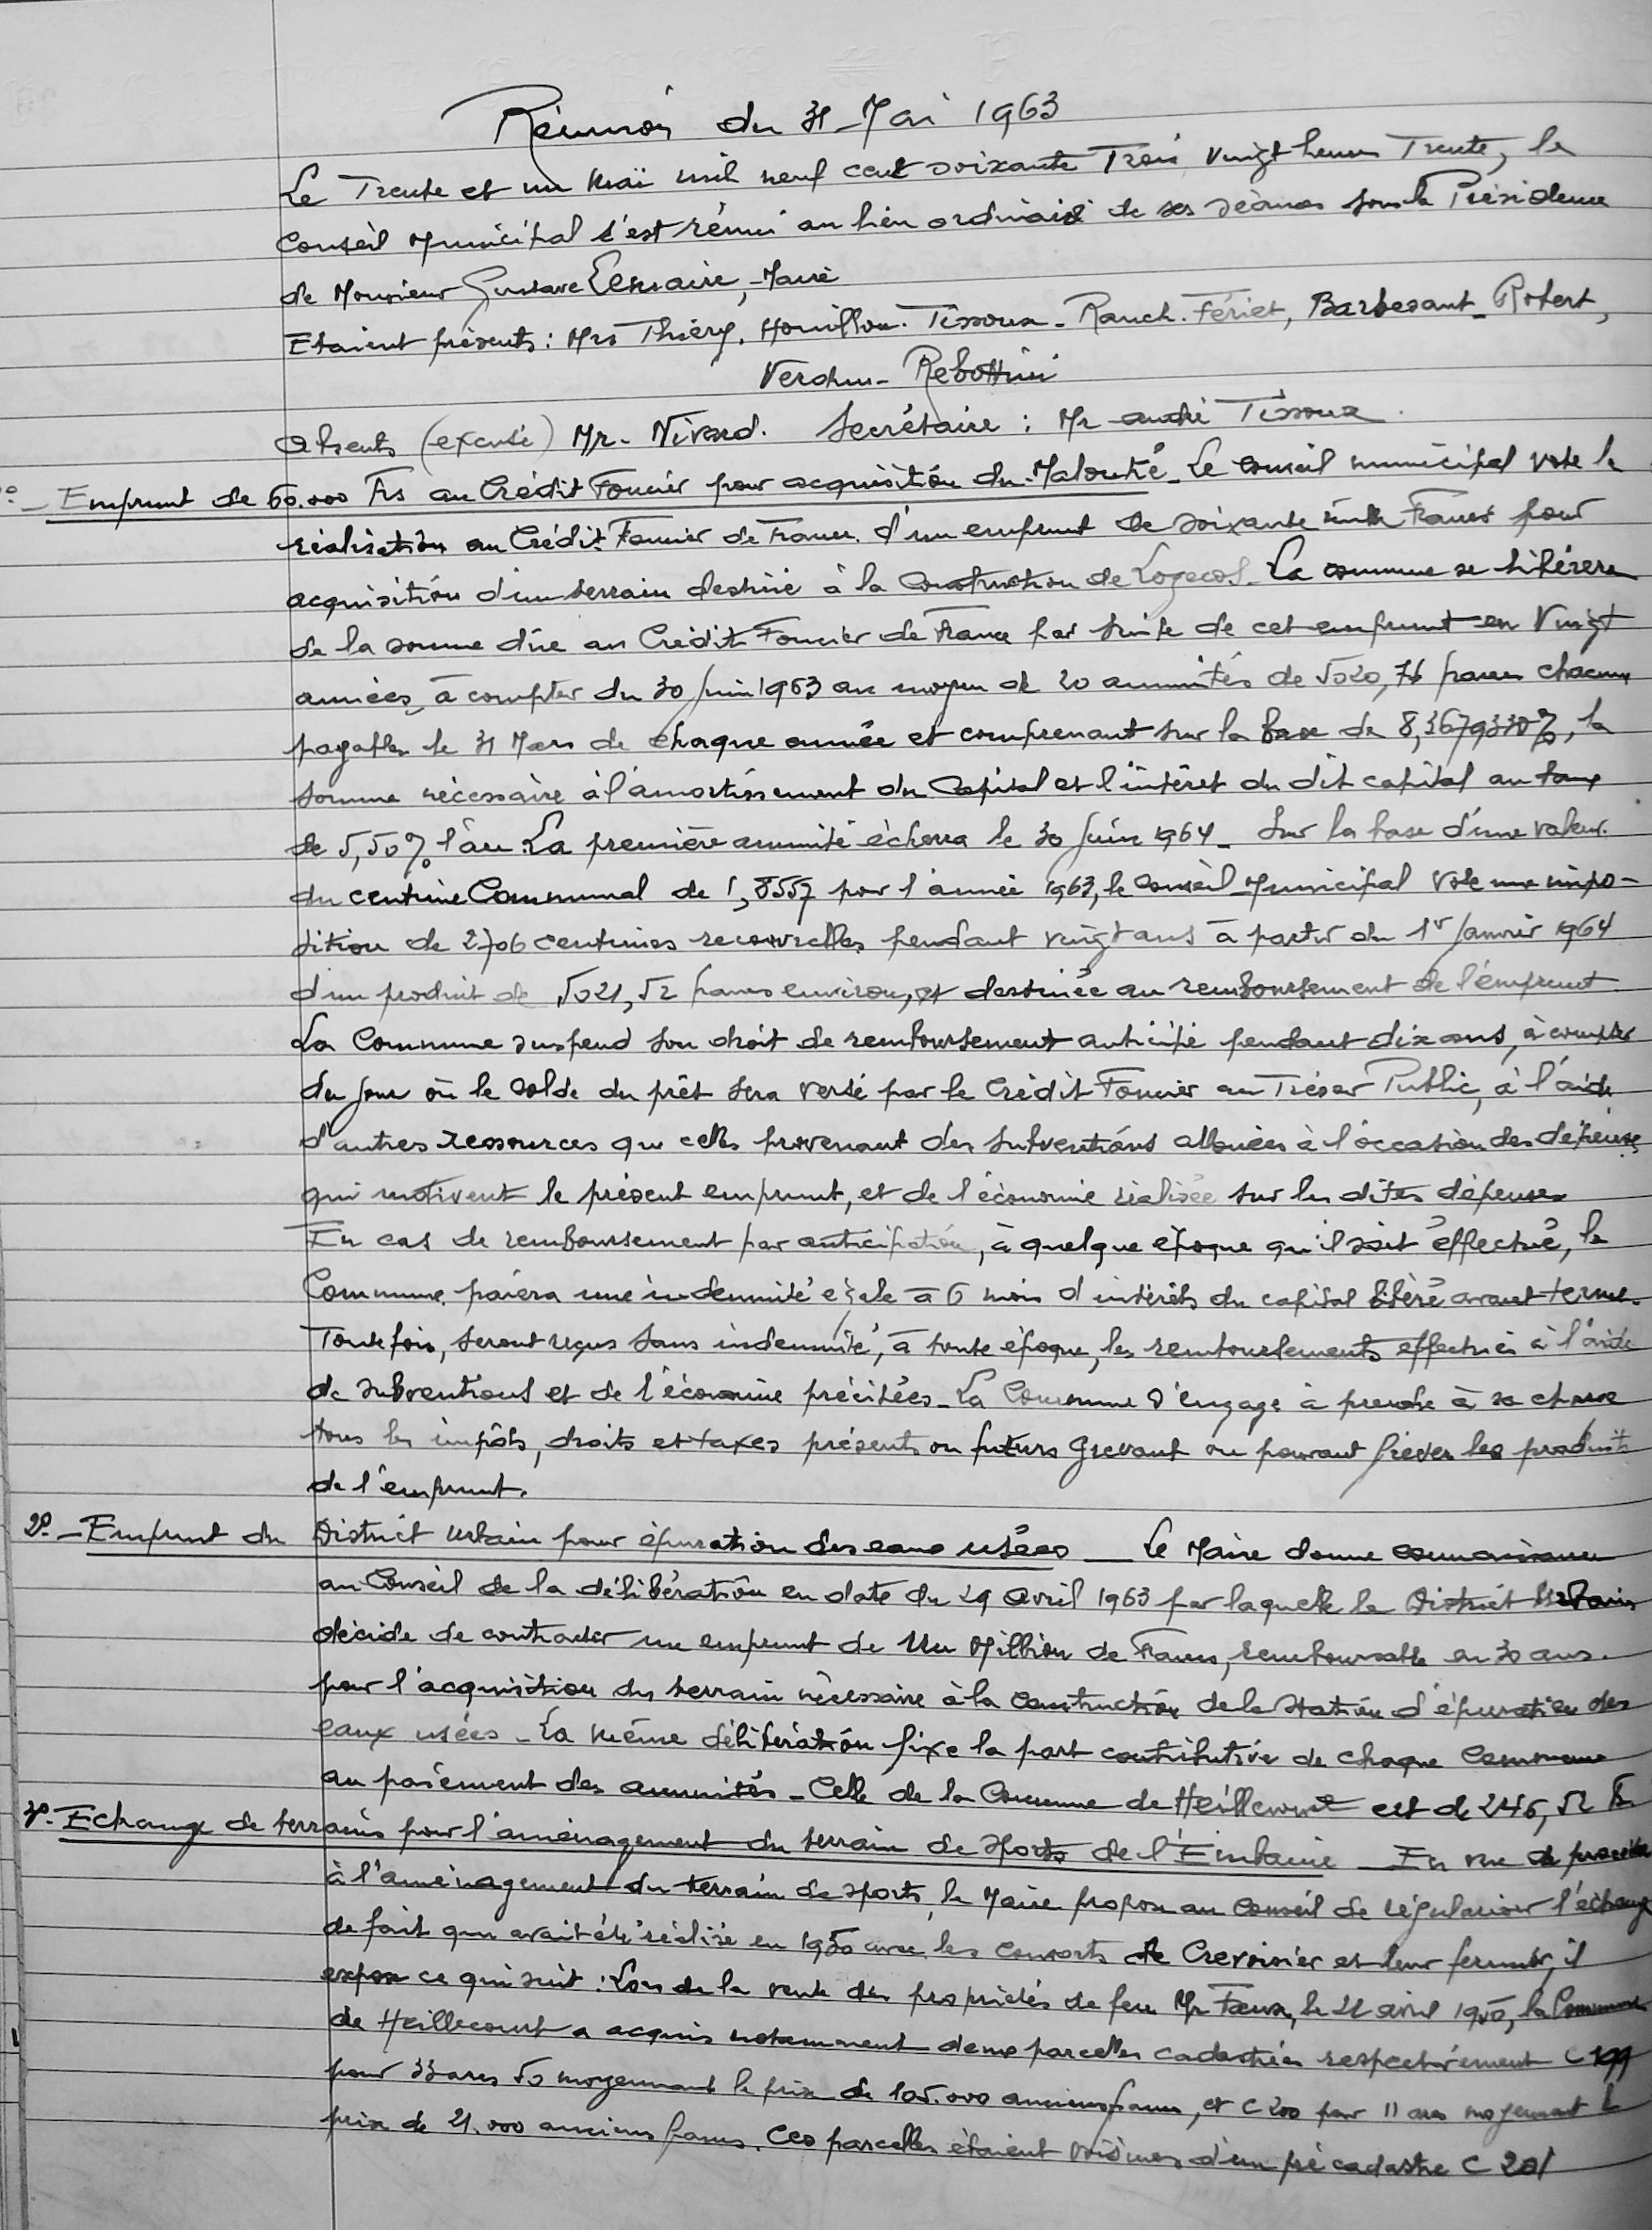 Réunion du 31 Mai 1963
Le Trente et un Maï mil neuf cent soixante Trois vingt heures Trente, le
Conseil Municipal s'est réuni au lieu ordinaire de ses séances sous la Présidence
de Monsieur Gustave Lemaire, Maire
Etaient présents : Mrs Thiéry, Houillon. Tissoux - Rauch. Fériet, Barbesant - Robert,
Verdun - Rebottini
Absents (excusé) Mr. Nivard. Secrétaire : Mr andré Tissoux
- Emprunt de 60.000 Frs au Crédit Foncier pour acquisition du Malouté - Le Conseil municipal vote la
réalisation au Crédit Foncier de France d'un emprunt de soixante mille Francs pour
acquisition d'un terrain destiné à la construction de Logecos. La commune se libérera
de la somme dûe au Crédit Foncier de France par suite de cet emprunt en Vingt
années, à compter du 30 Juin 1963 au moyen de 20 annuités de 5020,76 francs chacune
payables le 31 Mars de chaque année et comprenant sur la base de 8,3679330%, la
somme nécessaire à l'amortissement du Capital et l'intéret du dit capital au taux
de 5,50% l'an. La première annuité écherra le 30 Juin 1964 - Sur la base d'une valeur
du centime Communal de 1,8557 pour l'année 1963, le Conseil Municipal Vote une impo-
sition de 2706 centimes recouvrables pendant vingt ans à partir du 1er Janvier 1964
d'un produit de 5021,52 francs environ, et destinée au remboursement de l'emprunt
La Commune suspend son droit de remboursement anticipé pendant dix ans, à compter
du jour où le solde du prêt sera versé par le Crédit Foncier au Trésor Public, à l'aide
d'autres ressources que celles provenant des subventions allouées à l'occasion des dépenses
qui motivent le présent emprunt, et de l'économie réalisée sur les dites dépenses
En cas de remboursement par anticipation, à quelque époque qu'il soit effectué, la
Commune paiera une indemnité égale à 6 mois d'intérêts du capital libéré avant terme.
Toutefois, seront reçus sans indemnité, à toute époque, les remboursements effectués à l'aide
de subventions et de l'économie précitées - La Commune s'engage à prendre à sa charge
tous les impôts, droits et taxes présents ou futurs grevant ou pouvant grever les produits
de l'emprunt.
2° - Emprunt du District Urbain pour épuration des eaux usées - Le Maire donne connaissance
au Conseil de la délibération en date du 29 Avril 1963 par laquelle le District Urbain
décide de contracter un emprunt de Un Million de Francs, remboursable en 30 ans.
pour l'acquisition du terrain nécessaire à la construction de la station d'épuration des
eaux usées - La même délibération fixe la part contributive de chaque Commune
au paiement des annuités - Celle de la Commune de Heillecourt est de 246,52 Frs
3° - Echange de terrains pour l'aménagement du terrain de sports de l'Embanie - En vue de procéder
à l'aménagement du terrain de sports, le Maire propose au Conseil de régulariser l'échange
de fait qui avait été réalisé en 1950 avec les consorts de Crevoisier et leur fermier, il
expose ce qui suit : Lors de la vente des propriétés de feu Mr Faux, le 21 avril 1950, la Commune
de Heillecourt a acquis notamment deux parcelles cadastrées respectivement C 199
pour 33 ares 50 moyennant le prix de 105.000 anciens francs, et C 200 pour 11 ares moyennant le
prix de 21.000 anciens francs. Ces parcelles étaient voisines d'un pré cadastre C 201